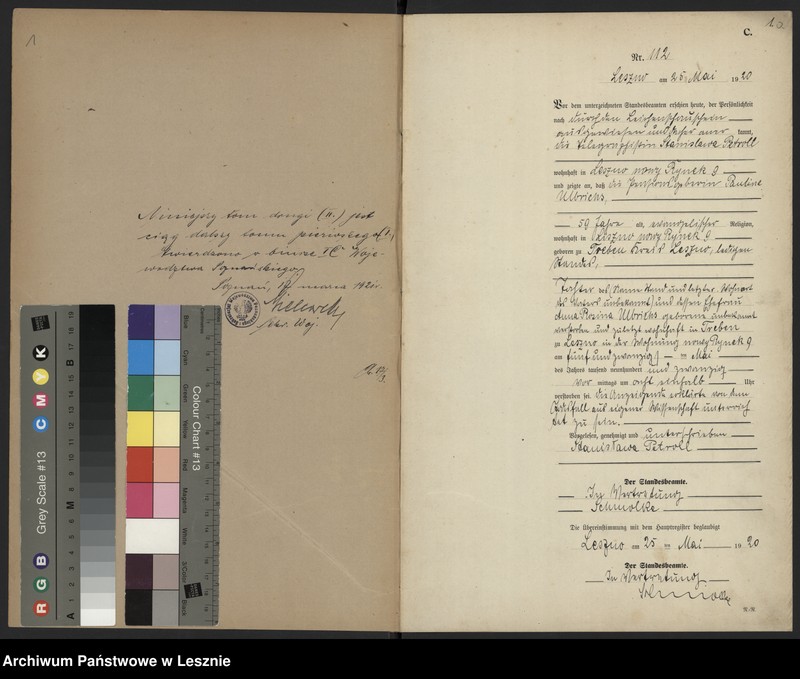 1
Niniejszy tom drugi (II.) jest
ciąg dalszy tomu pierwszego (I.)
Stwierdzono w biurze
wództwa Poznańskiego
Poznań, 17 marca 192
Sekr. Woj.
Grey Scale #13
R G B C M Y K
A 1 2 3 4 5 6 M 8 9 10 11 12 13 14 15 B 17 18 19
Colour Chart #13
Blue Cyan Green Yellow Red Magenta White 3/Color Black
10
C.
Nr. 112
Leszno am 25. Mai 1920
Vor dem unterzeichneten Standesbeamten erschien heute, der Persönlichkeit
nach durch den Leichenschauschein
ausgewiesen und kannt,
die Telegraphistin Stanisława Petroll
wohnhaft in Leszno nowy Rynek 9
und zeigte an, daß die Pensionsgeberin Pauline
Ulbrichs,
59 Jahre alt, evangelischer Religion,
wohnhaft in Leszno nowy Rynek 9
geboren zu Treben Kreis Leszno, ledigen
Standes,
Tochter des, Name Stand und letzter Wohnort
des Vaters unbekannt, und dessen Ehefrau
Anna Rosina Ulbrichs geborene unbekannt
verstorben und zuletzt wohnhaft in Treben
zu Leszno in der Wohnung nowy Rynek 9
am fünfundzwanzig ten Mai
des Jahres tausend neunhundert und zwanzig
vor mittags um acht einhalb Uhr
verstorben sei. Die Anzeigende erklärte von dem
Todesfall aus eigener Wissenschaft unterrich
tet zu sein.
Vorgelesen, genehmigt und unterschrieben
Stanisława Petroll
Der Standesbeamte.
In Vertretung
Schmolke
Die Übereinstimmung mit dem Hauptregister beglaubigt
Leszno am 25 ten Mai 1920
Der Standesbeamte.
In Vertretung
Schmolke
Archiwum Państwowe w Lesznie